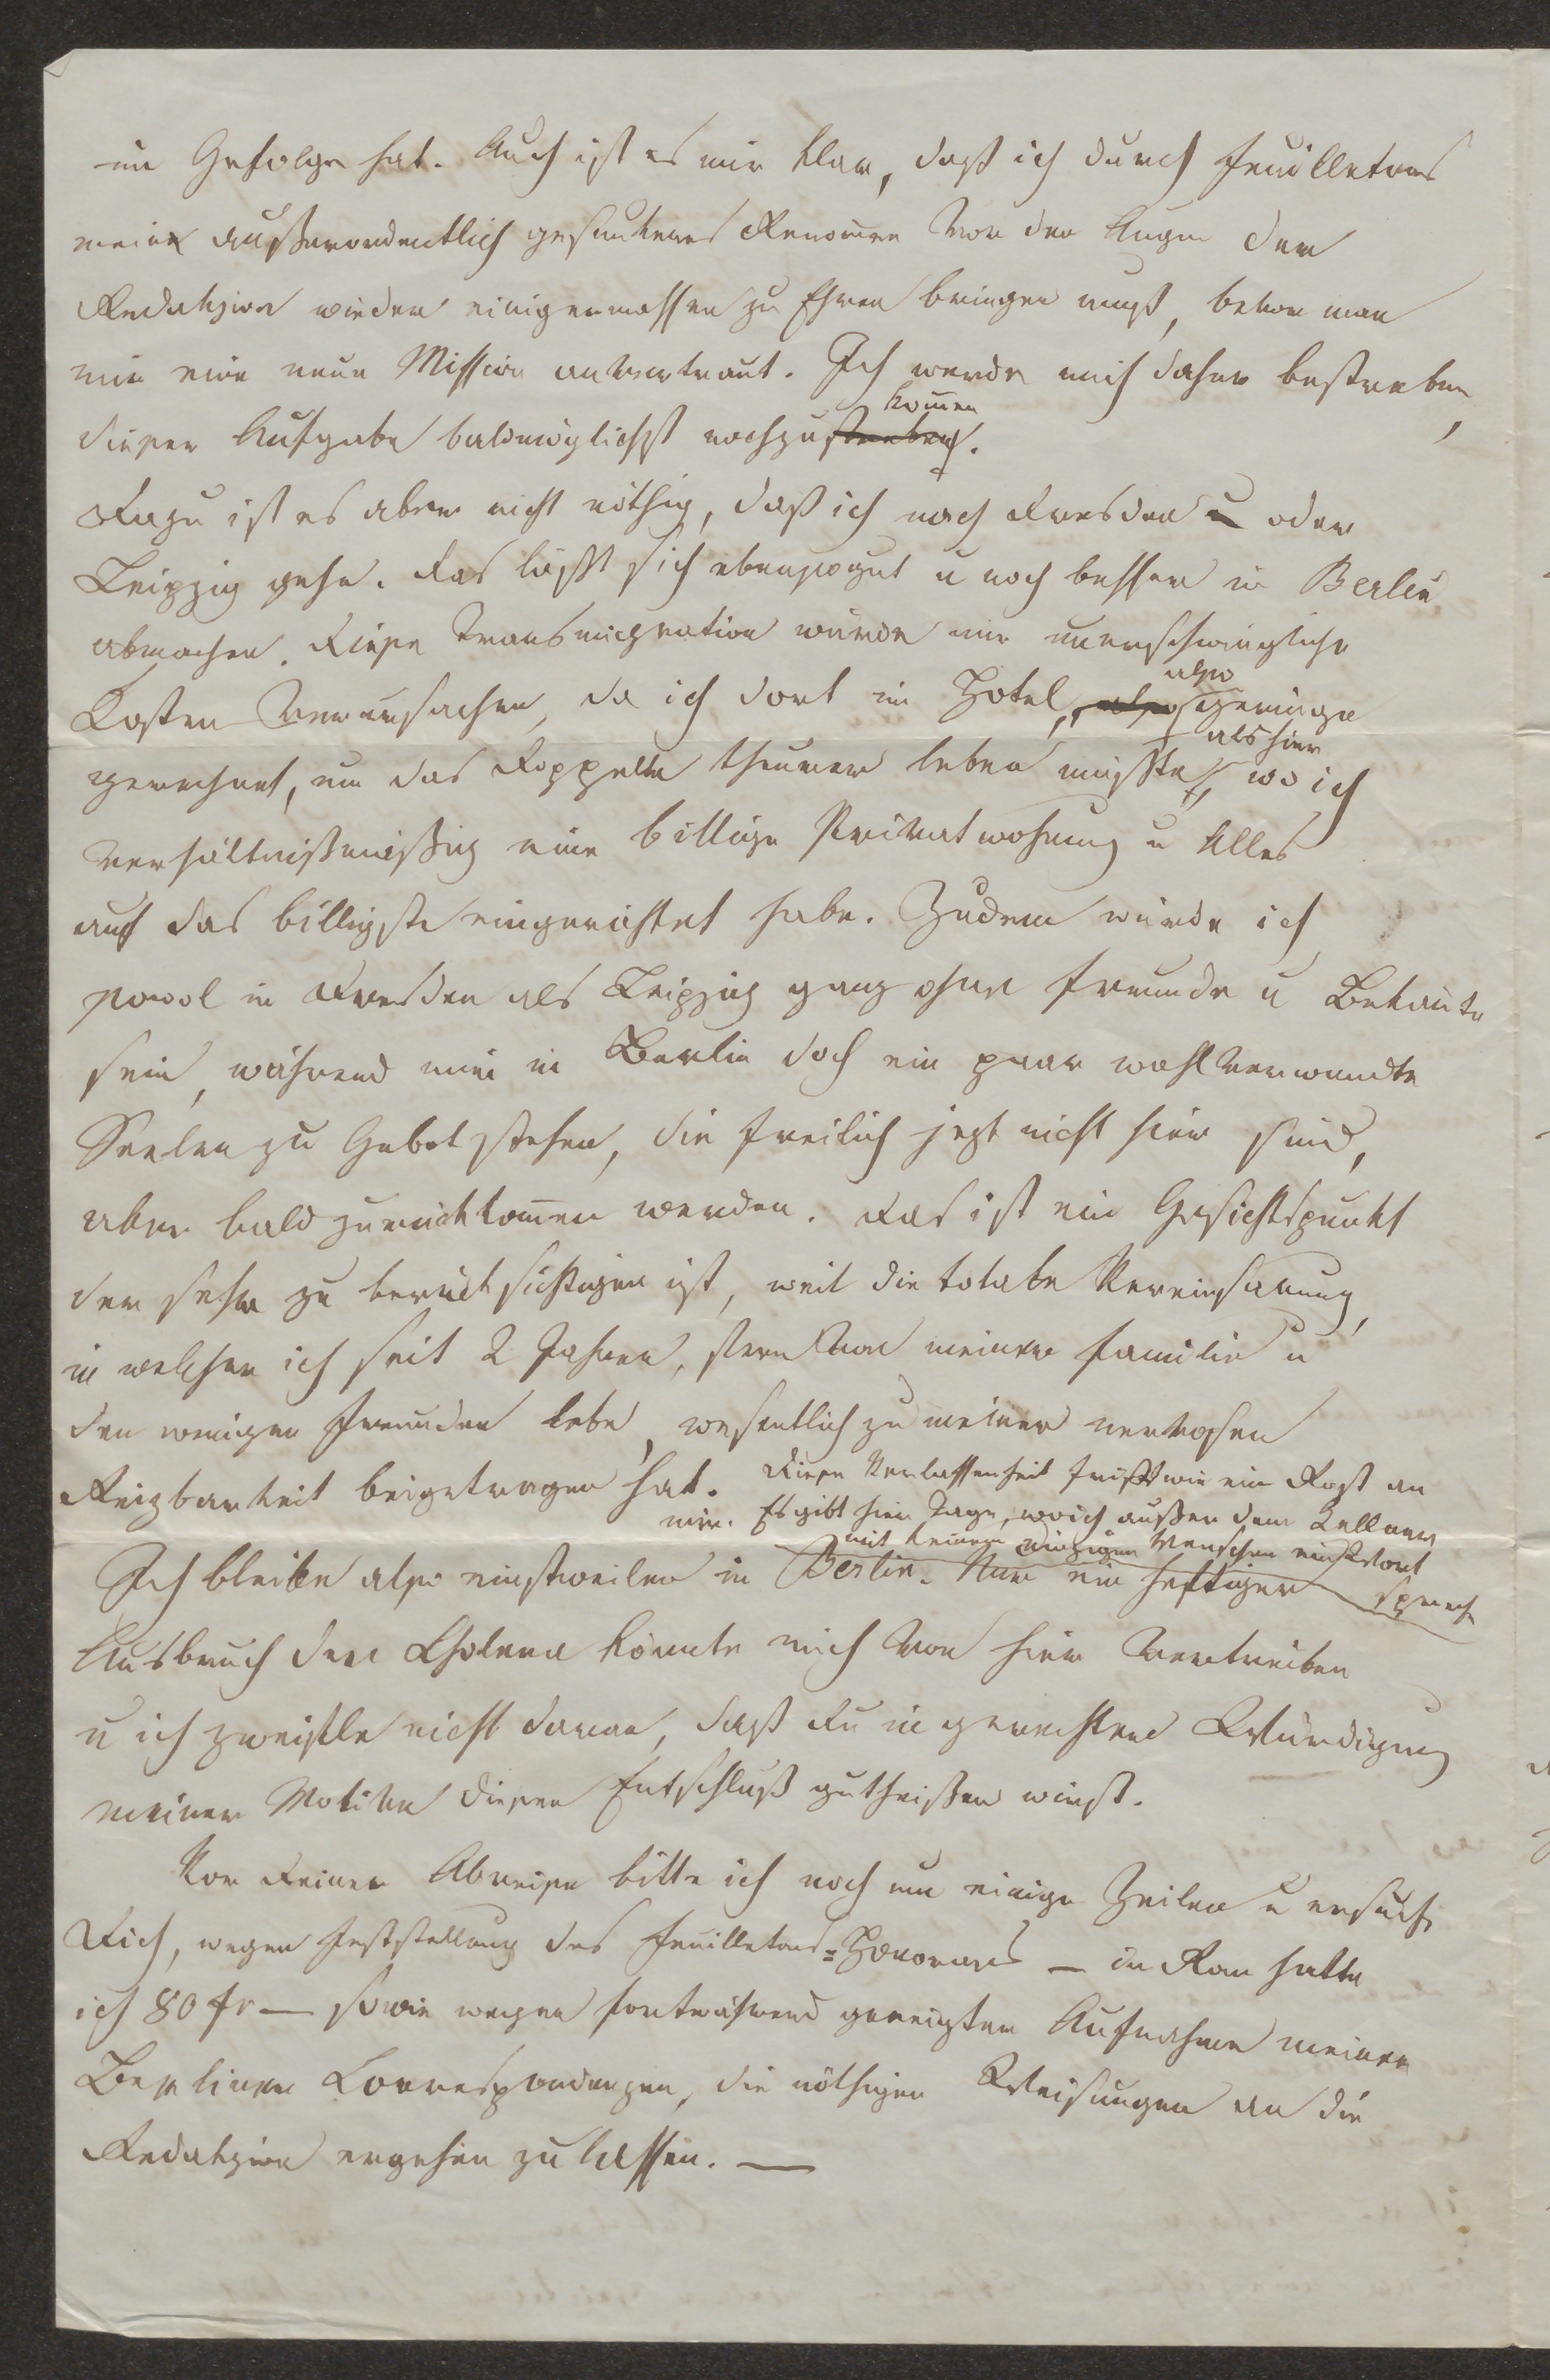 im Gefolge hat. Auch ist es mir klar, daß ich durch Feuilletons
mein außerordentlich gesunkenes Renom̄ee vor den Augen der
Redakzion wieder einigermassen zu Ehren bringen muß, bevor man
mir eine neue Mission anvertraut. Ich werde mich daher bestreben,
kom̄en
dieser Aufgabe baldmöglichst nachzustreben.
Dazu ist es aber nicht nöthig, daß ich nach Dresden u oder
Leipzig gehe. Das läßt sich ebensogut u noch besser in Berlin
abmachen. Diese Transmigration würde mir unerschwingliche
also
Kosten verursachen, da ich dort im Hotel, also geringe
als hier
gerechnet, um das Doppelte theurer leben müßte, wo ich
verhältnißmäßig eine billige Privatwohnung u Alles
auf das billigste eingerichtet habe. Zudem würde ich
sowol in Dresden als Leipzig ganz ohne Freunde u Bekan̄te
sein, während mir in Berlin doch ein paar wahlverwandte
Seelen zu Gebot stehen, die freilich jezt nicht hier sind,
aber bald zurückkom̄en werden. Das ist ein Gesichtspunkt
der sehr zu berücksichtigen ist, weil die totale Vereinsamung,
in welcher ich seit 2 Jahren, fern von meiner Familie u
den wenigen Freunden lebe, wesentlich zu meiner nervosen
Reizbarkeit beigetragen hat. Diese Verlassenheit frißt wie ein Rost an
mir. Es gibt hier Tage, wo ich außer dem Kellner
mit keinem einzigen Menschen ein Wort
spreche
Ich bleibe also einstweilen in Berlin. Nur ein heftiger
Ausbruch der Cholera könnte mich von hier vertreiben
u ich zweifle nicht daran, daß Du in gerechter Würdigung
meiner Motive diesen Entschluß gutheißen wirst.
Vor Deiner Abreise bitte ich noch um einige Zeilen u ersuche
Dich, wegen Feststellung des Feuilletons-Honorars — in Rom hatte
ich 80 fr — sowie wegen fortwährend geneigter Aufnahme meiner
Berliner Correspondenzen, die nöthigen Weisungen an die
Redakzion ergehen zu lassen. —